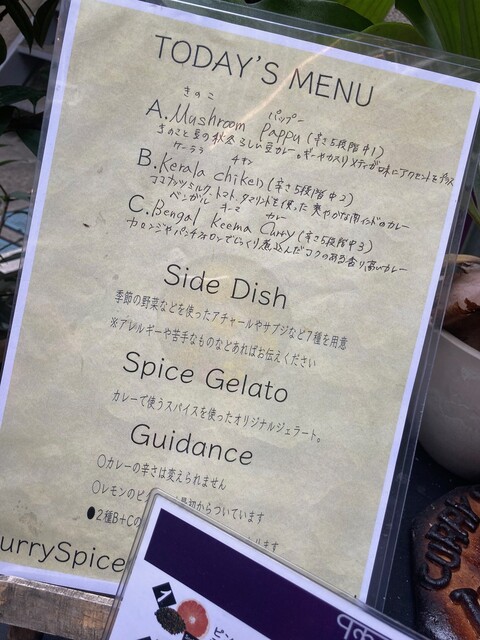 TODAY'S MENU
きのこ パップー
A. Mushroom Pappu (辛さ5段階中1)
きのこと豆の秋らしい豆カレー。ギーやカスリメティが味にアクセントをプラス
ケーララ チキン
B. Kerala chiken (辛さ5段階中2)
ココナッツミルク、トマト、タマリンドを使った爽やかな南インドのカレー
ベンガル キーマ カレー
C. Bengal Keema Curry (辛さ5段階中3)
カロンジやパンチフォロンでじっくり煮込んだコクのある香り高いカレー
Side Dish
季節の野菜などを使ったアチャールやサブジなど7種を用意
※アレルギーや苦手なものなどあればお伝えください
Spice Gelato
カレーで使うスパイスを使ったオリジナルジェラート。
Guidance
○カレーの辛さは変えられません
○レモンのピ 最初からついています
●2種B+Cの ります
urrySpice
1